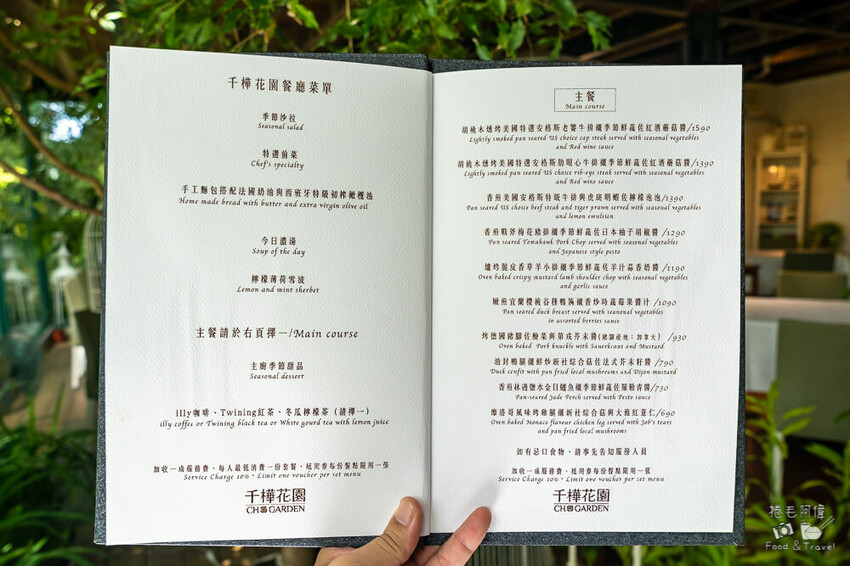 千樺花園餐廳菜單
季節沙拉
Seasonal salad
特選前菜
Chef's specialty
手工麵包搭配法國奶油與西班牙特級初榨橄欖油
Home made bread with butter and extra virgin olive oil
今日濃湯
Soup of the day
檸檬薄荷雪波
Lemon and mint sherbet
主餐請於右頁擇一/Main course
主廚季節甜品
Seasonal dessert
illy咖啡、Twining紅茶、冬瓜檸檬茶(請擇一)
illy coffee or Twining black tea or White gourd tea with lemon juice
加收一成服務費，每人最低消費一份套餐，抵用券每份餐點限用一張
Service Charge 10%，Limit one voucher per set menu
千樺花園
CH GARDEN
主餐
Main course
胡桃木燻烤美國特選安格斯老饕牛排襯季節鮮蔬佐紅酒蘑菇醬/1590
Lightly smoked pan seared US choice cap steak served with seasonal vegetables
and Red wine sauce
胡桃木燻烤美國特選安格斯肋眼心牛排襯季節鮮蔬佐紅酒蘑菇醬/1390
Lightly smoked pan seared US choice rib-eye steak served with seasonal vegetables
and Red wine sauce
香煎美國安格斯特級牛排與虎斑明蝦佐檸檬泡泡/1390
Pan seared US choice beef steak and tiger prawn served with seasonal vegetables
and lemon emulsion
香煎戰斧梅花豬排襯季節鮮蔬佐日本柚子胡椒醬 /1290
Pan seared Tomahawk Pork Chop served with seasonal vegetables
and Japanese style pesto
爐烤脆皮香草羊小排襯季節鮮蔬佐羊汁蒜香奶醬 /1190
Oven baked crispy mustard lamb shoulder chop with seasonal vegetables
and garlic sauce
嫩煎宜蘭櫻桃谷種鴨胸襯香炒時蔬莓果醬汁 /1090
Pan seared duck breast served with seanonal vegetables
in assorted berries sauce
烤德國豬腳佐酸菜與第戎芥末醬(豬腳產地：加拿大) /930
Oven baked Pork knuckle with Sauerkraut and Mustard
油封鴨腿襯鮮炒新社綜合菇佐法式芥末籽醬 /790
Duck confit with pan fried local mushrooms and Dijon mustard
香煎林邊鹽水金目鱸魚襯季節鮮蔬佐羅勒青醬/730
Pan-seared Jade Perch served with Pesto sauce
摩洛哥風味烤雞腿襯新社綜合菇與大雅紅薏仁/690
Oven baked Monaco flavour chicken leg served with Job's tears
and pan fried local mushrooms
如有忌口食物，請事先告知服務人員
加收一成服務費，抵用券每份餐點限用一張
Service Charge 10%，Limit one voucher per set menu
千樺花園
CH GARDEN
捲毛阿偉
Food & Travel